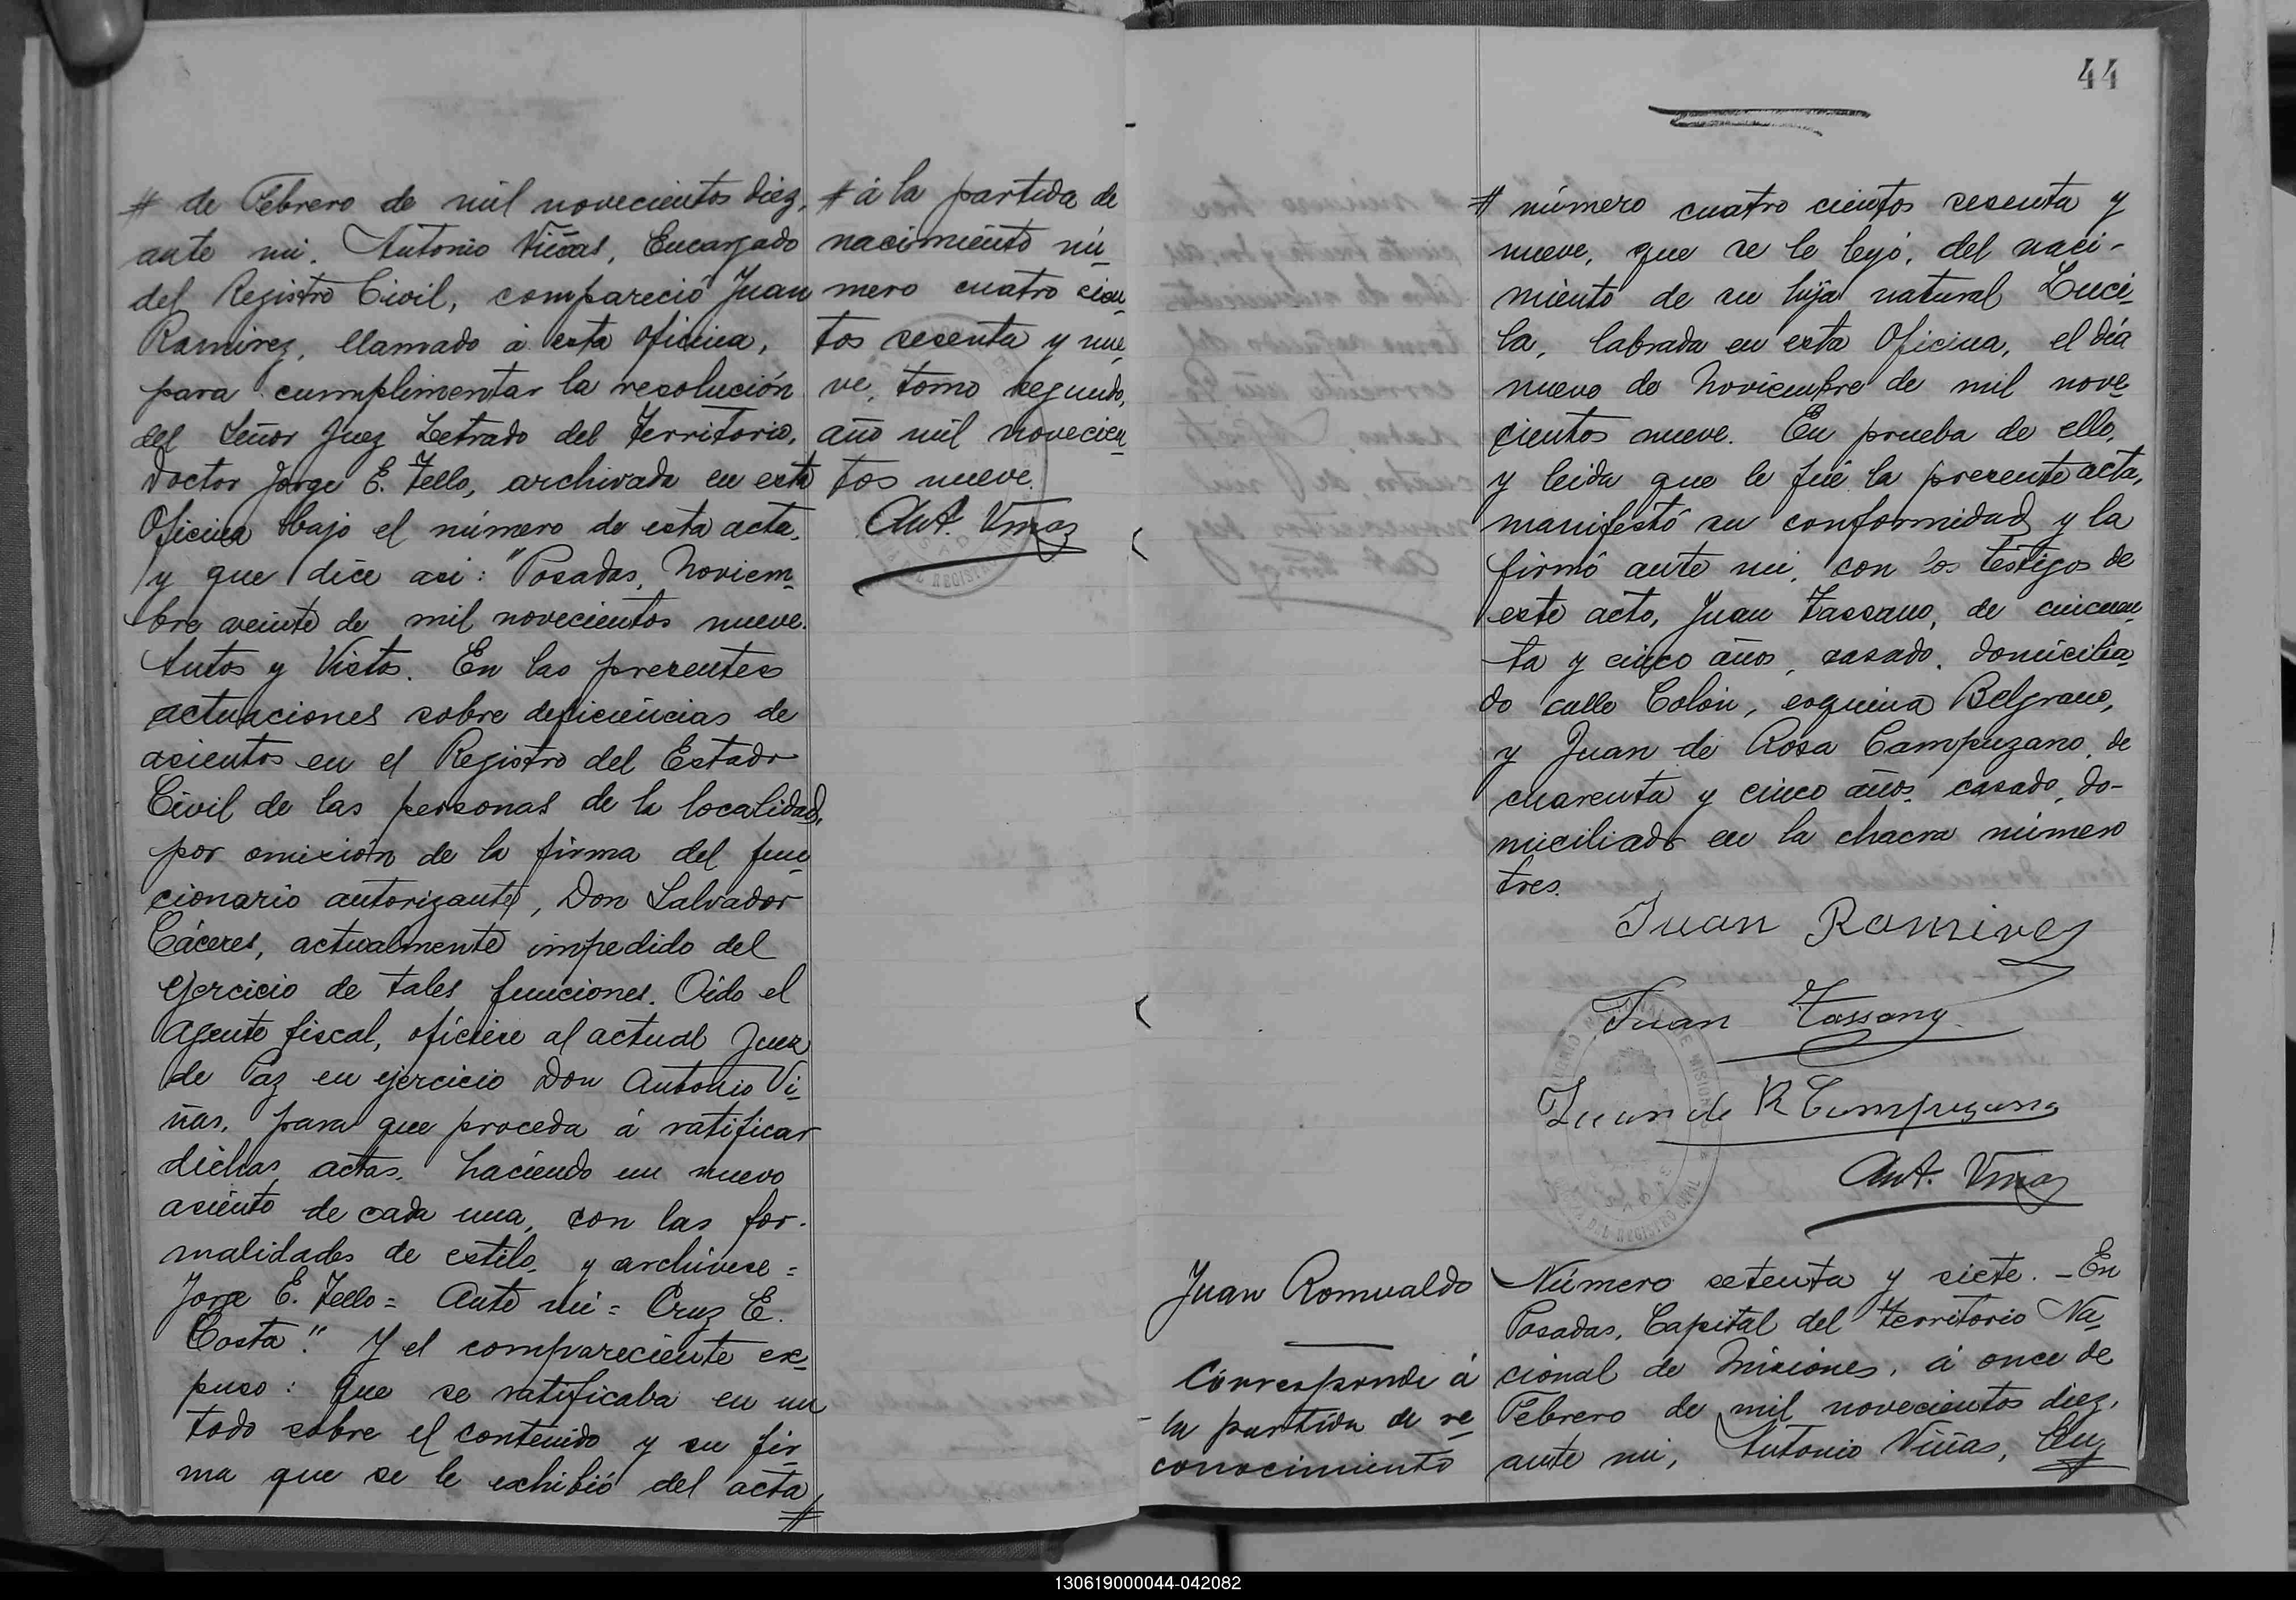 # de Febrero de mil novecientos diez,
ante mi, Antonio Viñas, Encargado
del Registro Civil, compareció Juan
Ramirez, llamado á esta Oficina,
para cumplimentar la resolución
del Señor Juez Letrado del Territorio,
Doctor Jorge E. Tello, archivada en esta
Oficina bajo el número de esta acta,
y que dice asi: "Posadas, Noviem-
bre veinte de mil novecientos nueve.
Autos y Vistos. En las presentes
actuaciones sobre deficiencias de
asientos en el Registro del Estado
Civil de las personas de la localidad,
por omisión de la firma del fun-
cionario autorizante, Don Salvador
Cáceres, actualmente impedido del
ejercicio de tales funciones. Oido el
Agente fiscal, ofíciese al actual Juez
de Paz en ejercicio Don Antonio Vi-
ñas, para que proceda á ratificar
dichas actas, haciendo un nuevo
asiento de cada una, con las for-
malidades de estilo, y archívese =
Jorge E. Tello = Ante mi = Cruz E.
Costa". Y el compareciente ex-
puso: Que se ratificaba en un
todo sobre el contenido y su fir-
ma que se le exhibió del acta #
# á la partida de
nacimiento nú-
mero cuatro cien-
tos sesenta y nue-
ve, tomo segundo,
año mil novecien-
tos nueve.
Ant. Vinas
44
# número cuatro cientos sesenta y
nueve, que se le leyó, del naci-
miento de su hija natural Luci-
la, labrada en esta Oficina, el día
nueve de Noviembre de mil nove-
cientos nueve. En prueba de ello,
y leida que le fué la presente acta,
manifestó su conformidad y la
firmó ante mi, con los testigos de
este acto, Juan Tassano, de cincuen-
ta y cinco años, casado, domicilia-
do calle Colón, esquina Belgrano,
y Juan de Rosa Campuzano, de
cuarenta y cinco años, casado, do-
miciliado en la chacra número
tres.
Juan Ramirez
Juan Tassany
Juan de R Campuzano
Ant. Vinas
Juan Romualdo
Corresponde á
la partida de re-
conocimiento
Número setenta y siete. - En
Posadas, Capital del Territorio Na-
cional de Misiones, á once de
Febrero de mil novecientos diez,
ante mi, Antonio Viñas,
130619000044-042082